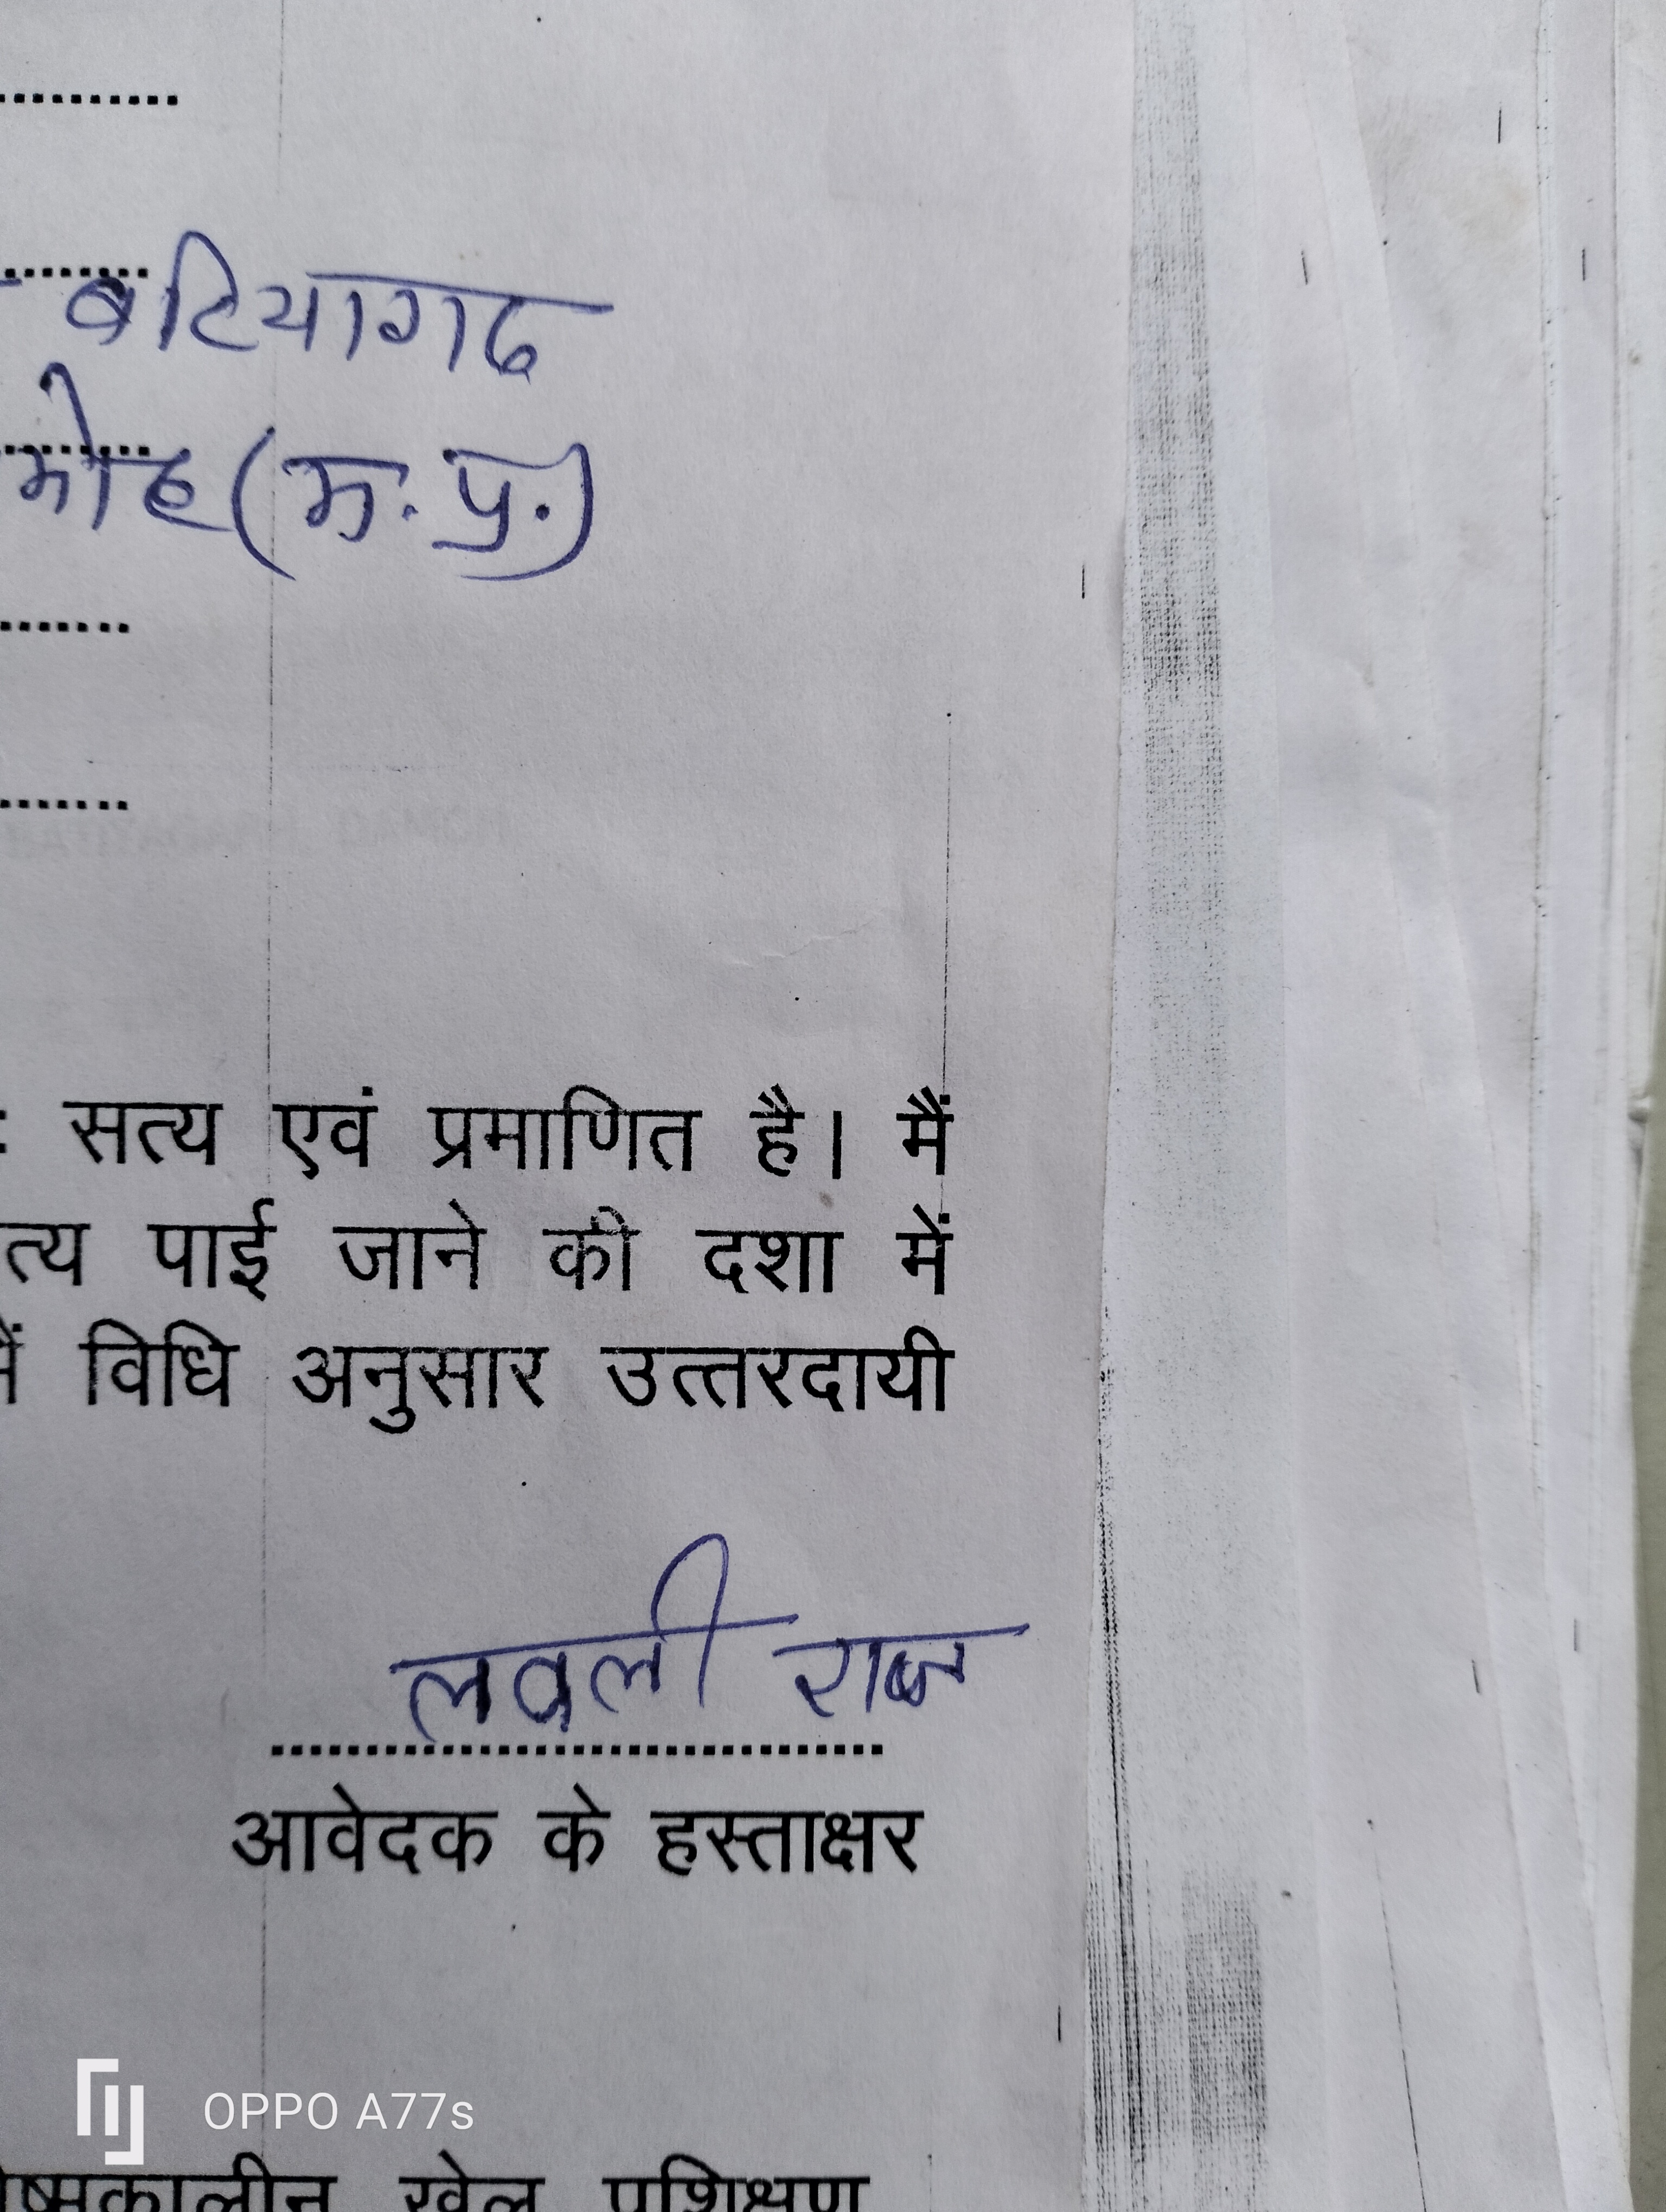 बटियागढ
मोह (म.प्र.)
: सत्य एवं प्रमाणित है। मैं
त्य पाई जाने की दशा में
में विधि अनुसार उत्तरदायी
लवली राज
आवेदक के हस्ताक्षर
OPPO A77s
ष्मकालीन खेल प्रशिक्षण